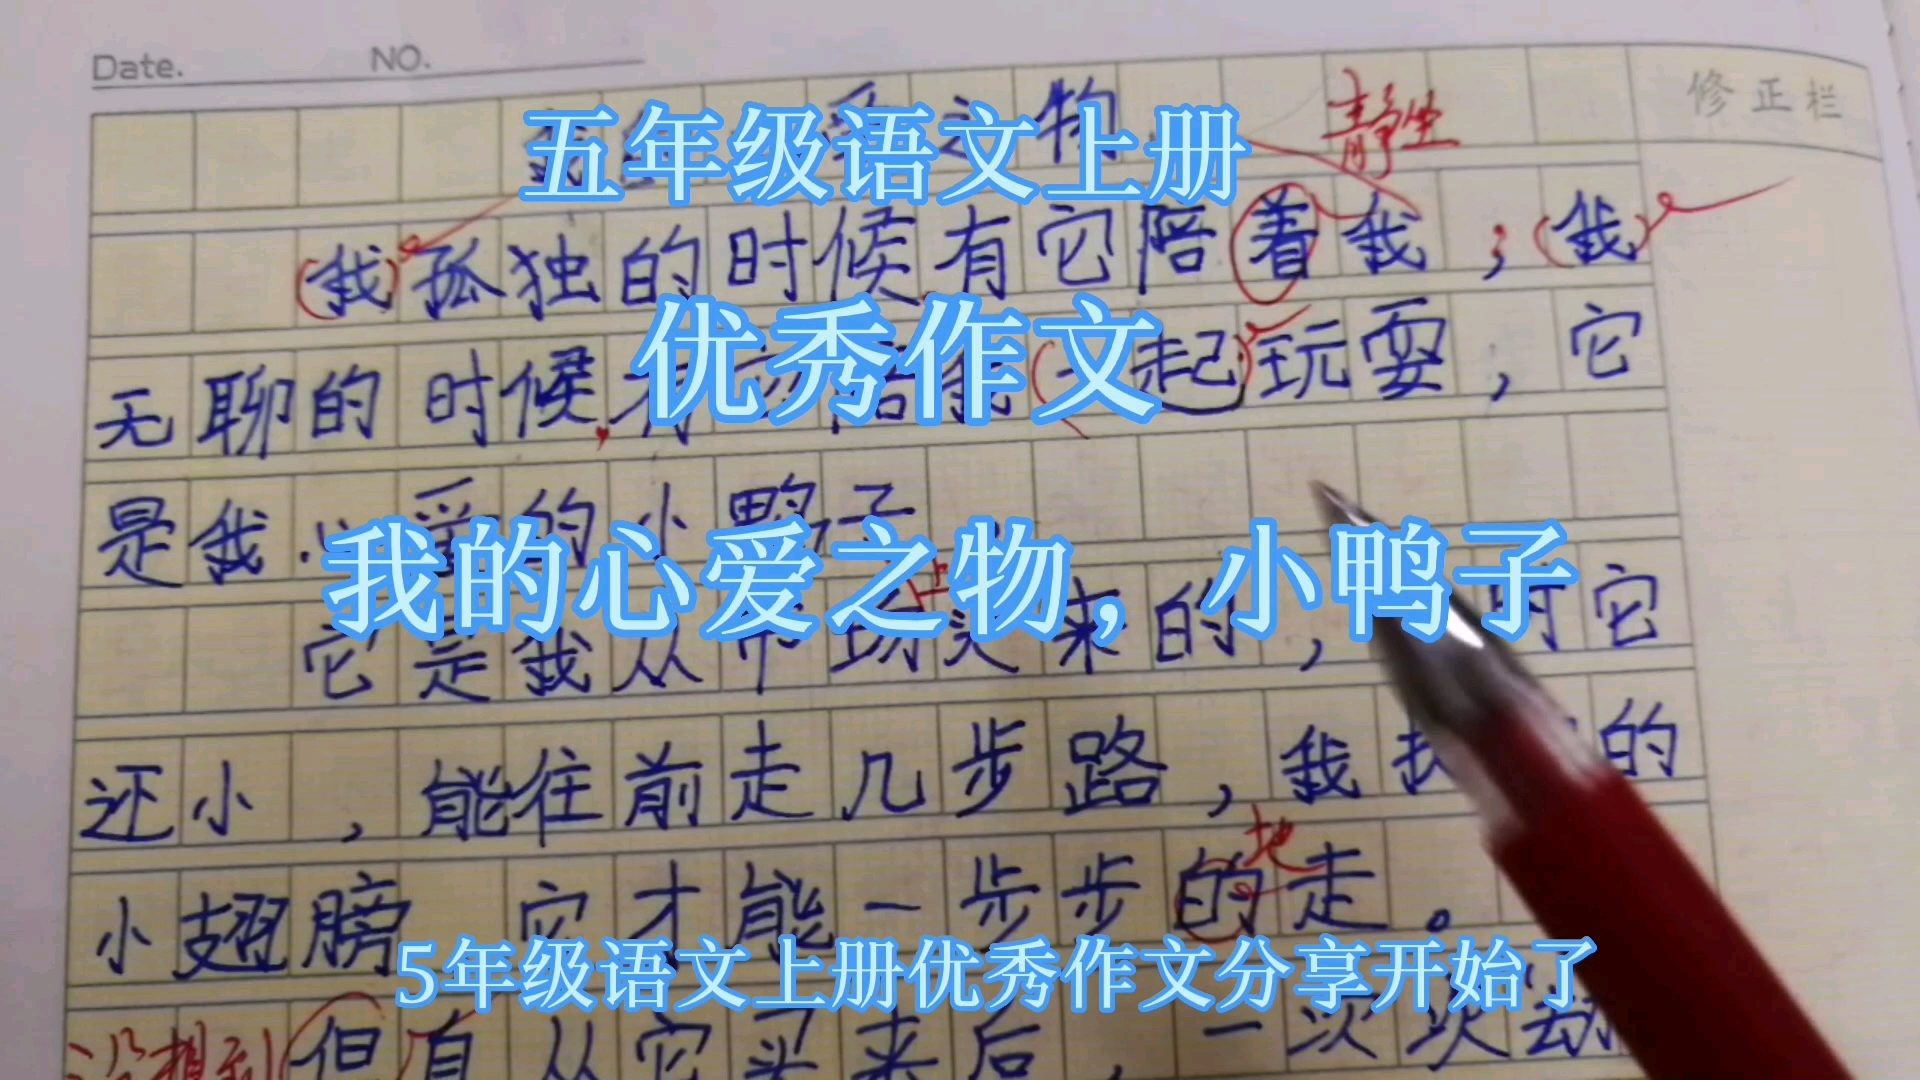 Date. NO.
修正栏
五年级语文上册
静坐
我孤独的时候,有它陪着我；我
无聊的时候,有它陪我一起玩耍，它
优秀作文
是我心爱的小鸭子
我的心爱之物，小鸭子
它是我从市场上买来的，时它
还小，能往前走几步路，我扶的
小翅膀 它才能一步步的走。
地
5年级语文上册优秀作文分享开始了
没想到
但自从它买来后，一次次